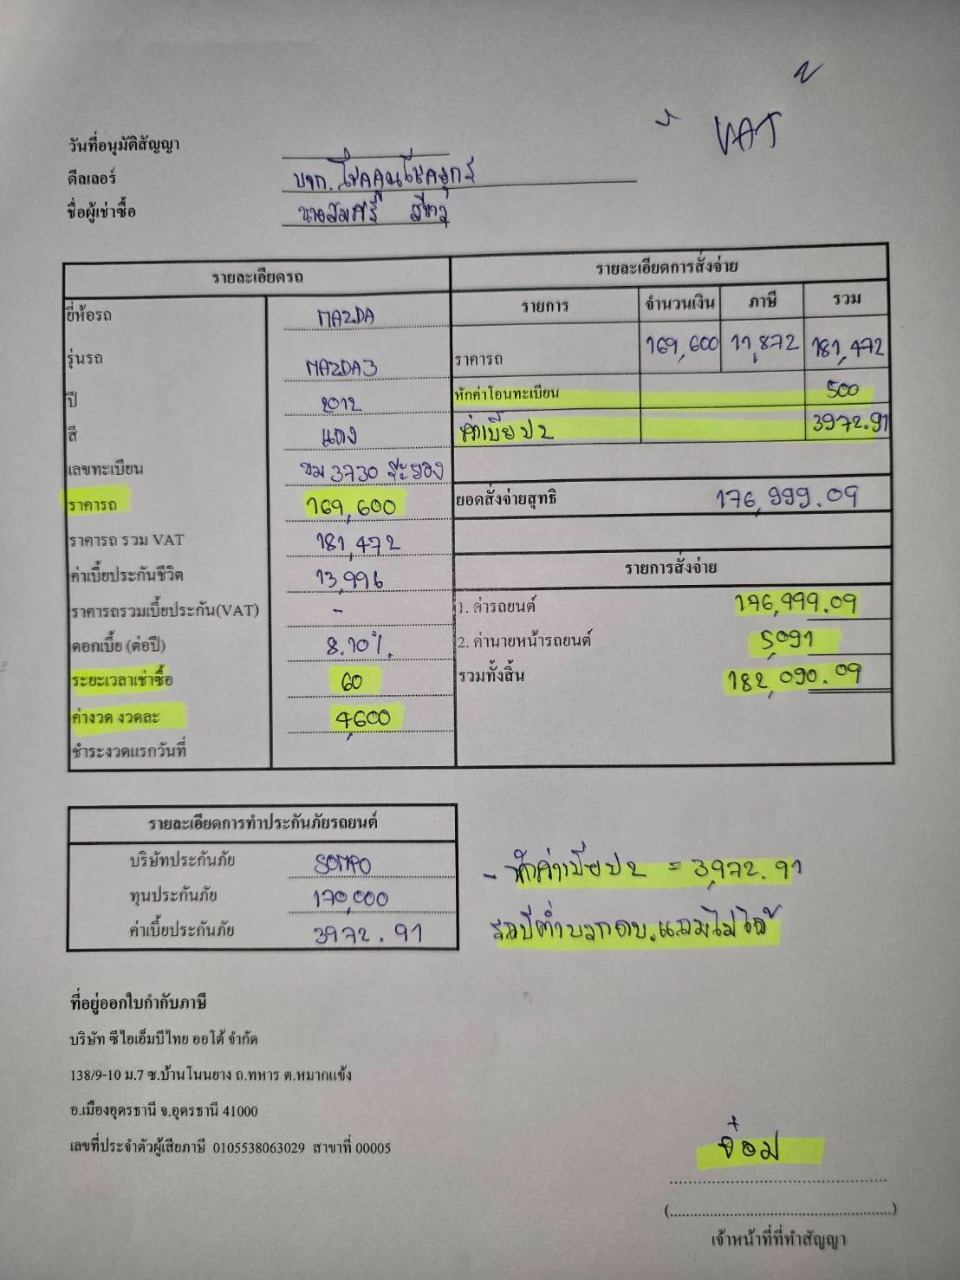 มี VAT
วันที่อนุมัติสัญญา
ดีลเลอร์ บจก. โชคคูณโชค
ชื่อผู้เช่าซื้อ นายสมศรี
รายละเอียดรถ
ยี่ห้อรถ MAZDA
รุ่นรถ MAZDA3
ปี 2012
สี แดง
เลขทะเบียน ขม 3730 ระยอง
ราคารถ 169,600
ราคารถ รวม VAT 181,472
ค่าเบี้ยประกันชีวิต 13,996
ราคารถรวมเบี้ยประกัน(VAT) -
ดอกเบี้ย (ต่อปี) 8.70%.
ระยะเวลาเช่าซื้อ 60
ค่างวด งวดละ 4,600
ชำระงวดแรกวันที่
รายละเอียดการสั่งจ่าย
รายการ จำนวนเงิน ภาษี รวม
ราคารถ 169,600 11,872 181,472
หักค่าโอนทะเบียน 500
ค่าเบี้ย ป2 3972.91
ยอดสั่งจ่ายสุทธิ 176,999.09
รายการสั่งจ่าย
1. ค่ารถยนต์ 176,999.09
2. ค่านายหน้ารถยนต์ 5,091
รวมทั้งสิ้น 182,090.09
รายละเอียดการทำประกันภัยรถยนต์
บริษัทประกันภัย SOMPO
ทุนประกันภัย 170,000
ค่าเบี้ยประกันภัย 3972.91
- หักค่าเบี้ย ป2 = 3,972.91
ที่อยู่ออกใบกำกับภาษี
บริษัท ซีไอเอ็มบีไทย ออโต้ จำกัด
138/9-10 ม.7 ซ.บ้านโนนยาง ถ.ทหาร ต.หมากแข้ง
อ.เมืองอุดรธานี จ.อุดรธานี 41000
เลขที่ประจำตัวผู้เสียภาษี 0105538063029 สาขาที่ 00005
จ๋อม
(......................................................)
เจ้าหน้าที่ที่ทำสัญญา